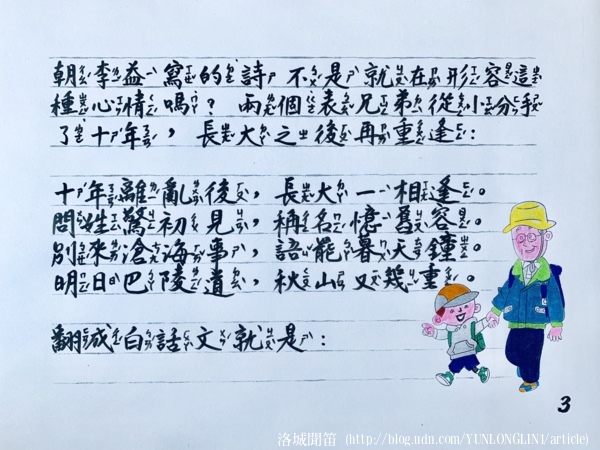 朝李益寫的詩 不是就在形容這
種心情嗎？ 兩個表兄弟從小分手
了十年，長大之後再重逢：
十年離亂後，長大一相逢。
問姓驚初見，稱名憶舊容。
別來滄海事，語罷暮天鐘。
明日巴陵道，秋山又幾重。
翻成白話文就是：
3
洛城聞笛 (http://blog.udn.com/YUNLONGLIN1/article)